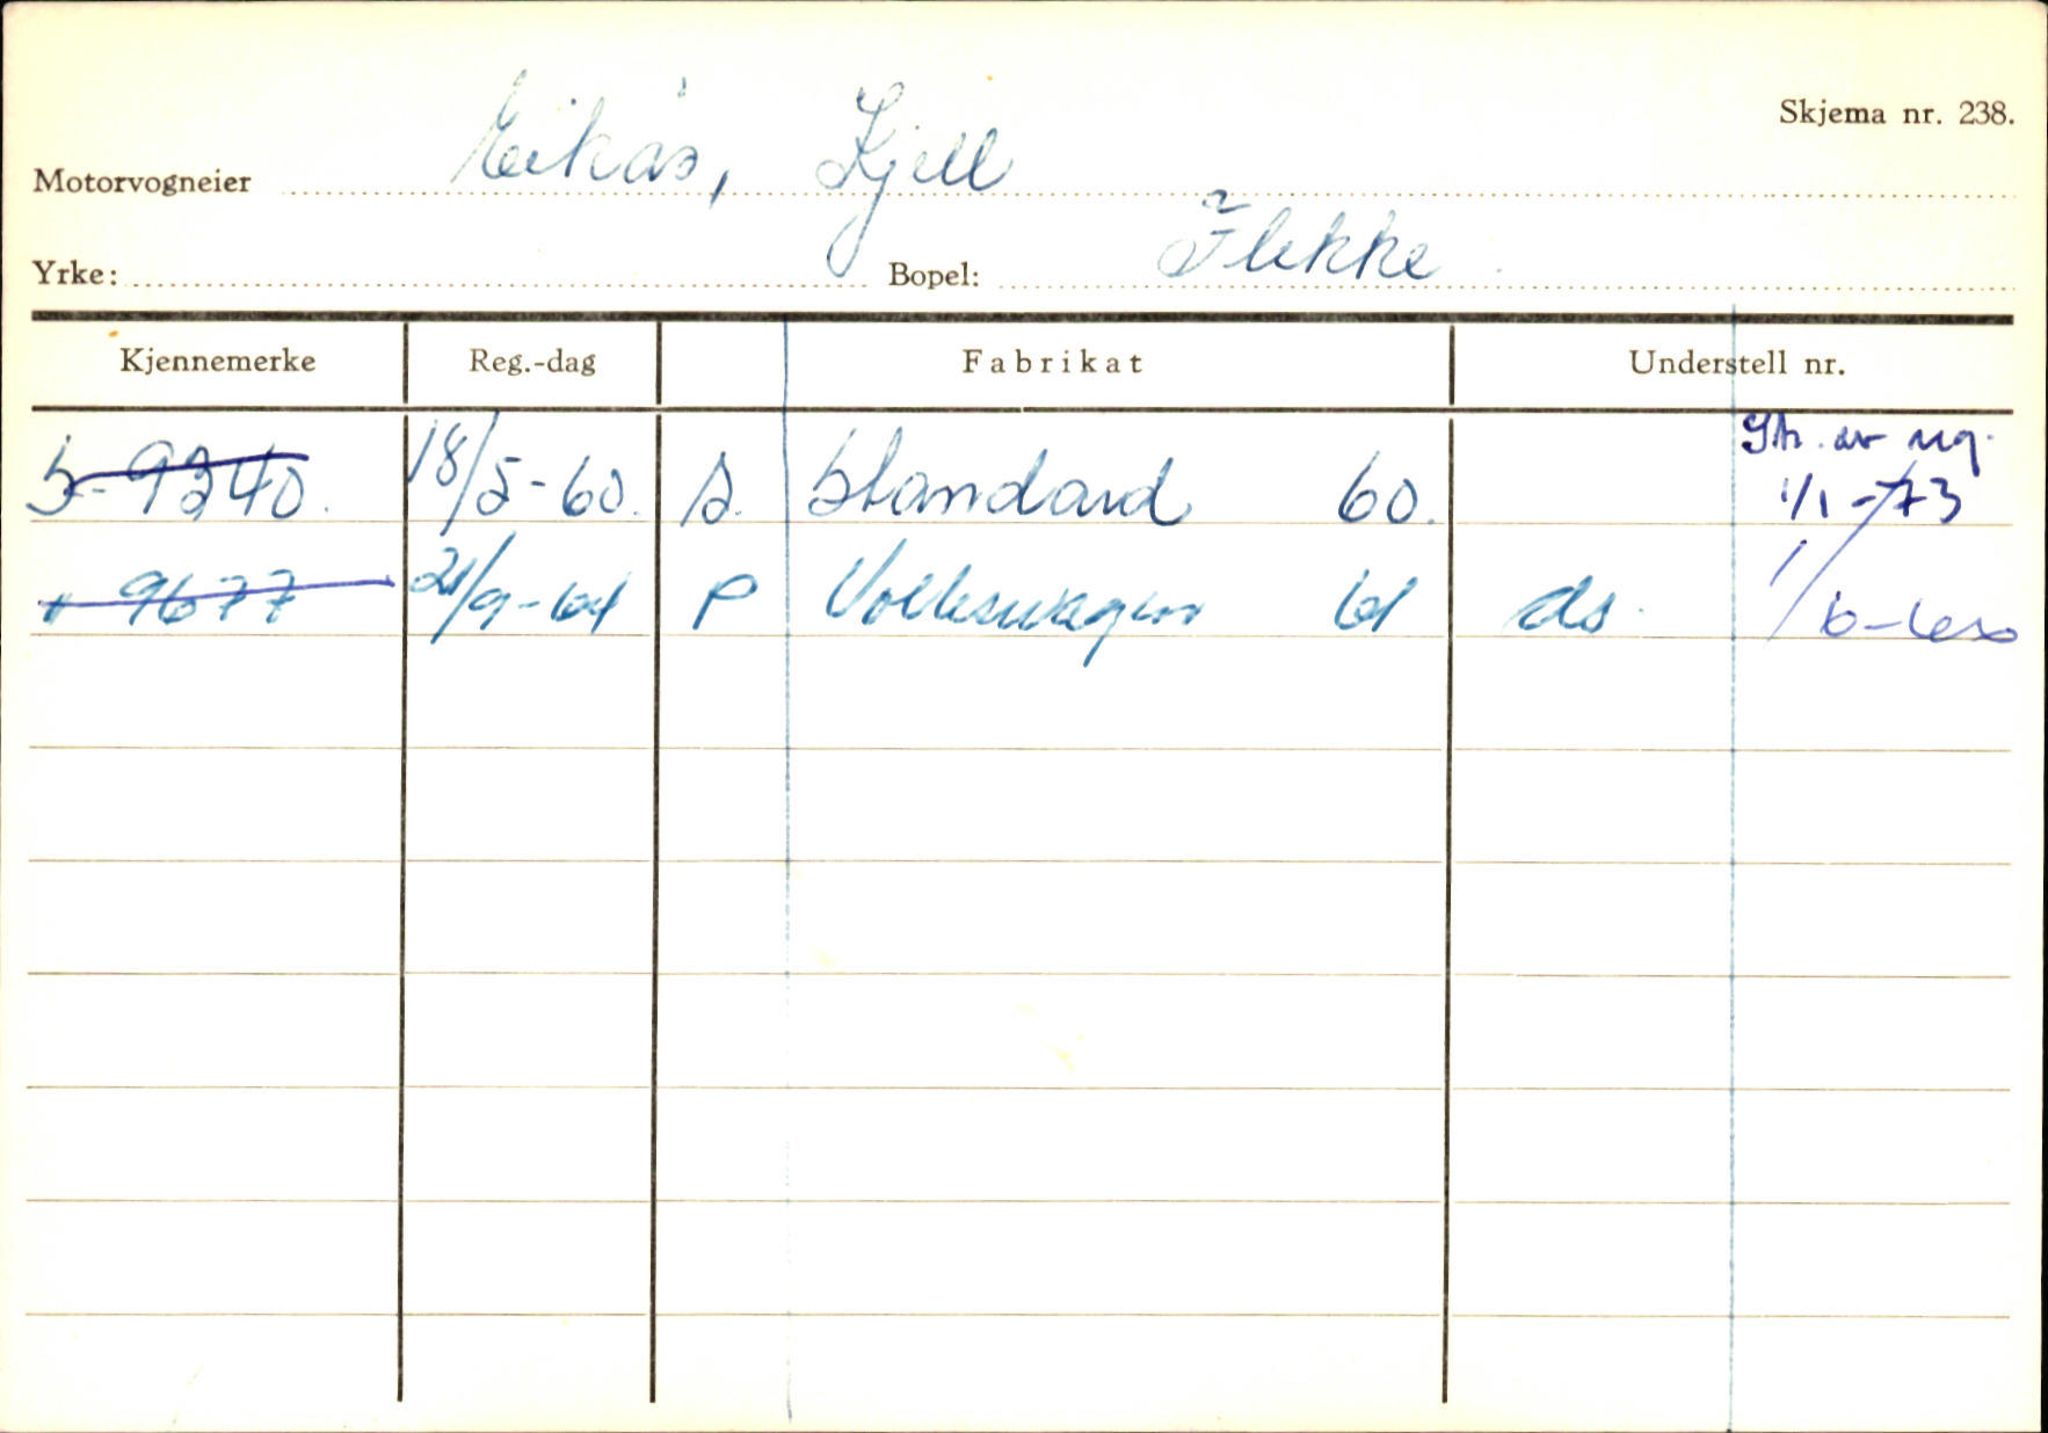 Skjema nr. 238.
Motorvogneier Eikås, Kjell
Yrke: Bopel: Flekke
Kjennemerke Reg.-dag Fabrikat Understell nr.
S-9240. 18/5-60. S. Standard 60. Str. av reg. 1/1-73
" 9677 21/9-64 P Volkswagen 61 ds.